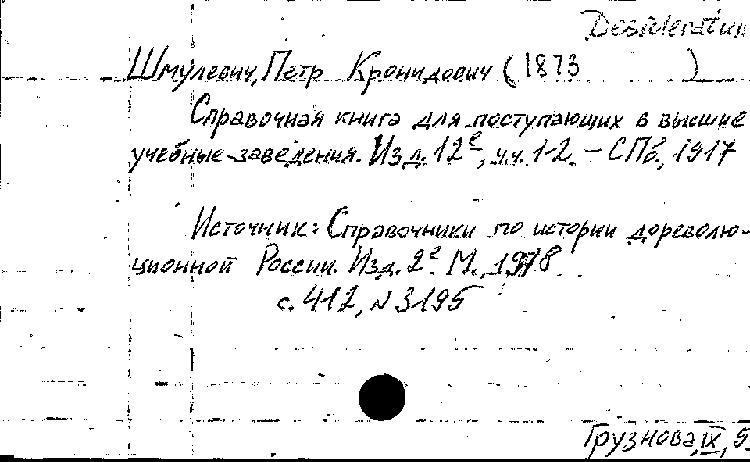 Desideratum
Шмулевич, Петр Кронидович (1873 )
Справочная книга для поступающих в высшие
учебные заведения. Изд. 12е, ч.ч. 1-2. - СПб., 1917
Источник: Справочники по истории дореволю-
ционной России. Изд. 2е М., 1978
с. 412, N 3195
Грузнова, IX, 5